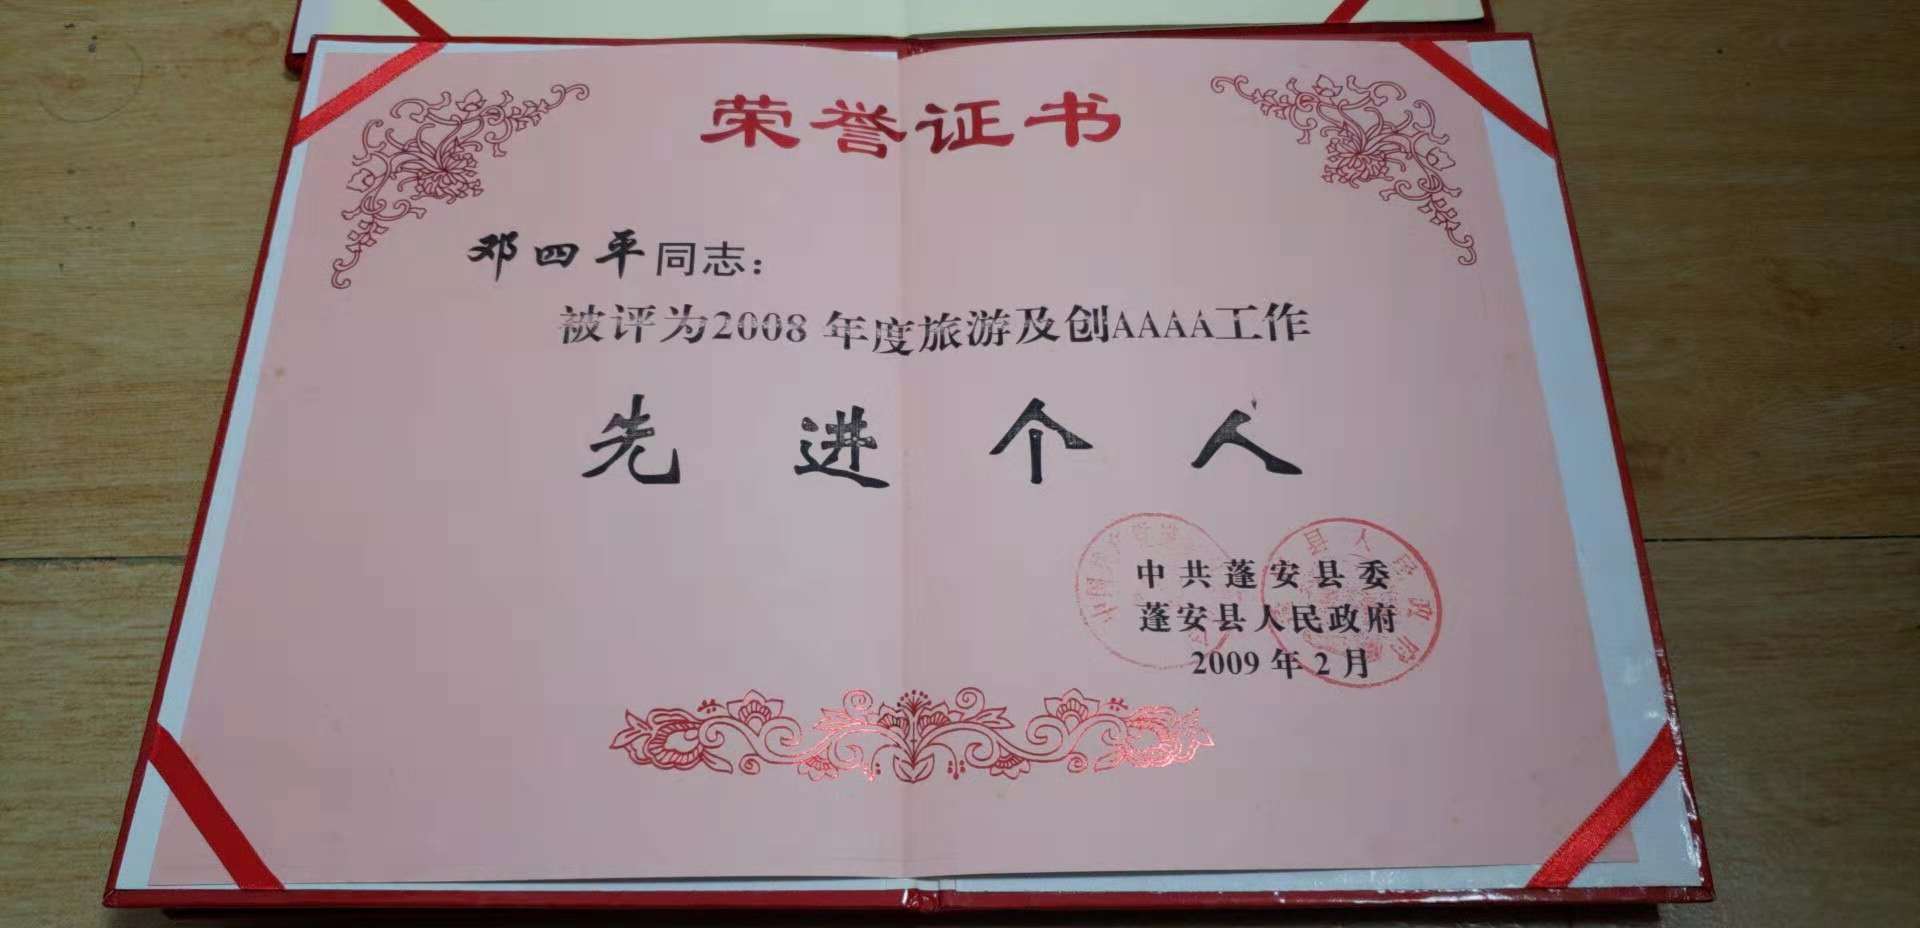 荣誉证书
邓四平同志：
被评为2008年度旅游及创AAAA工作
先进个人
中共蓬安县委
蓬安县人民政府
2009年2月